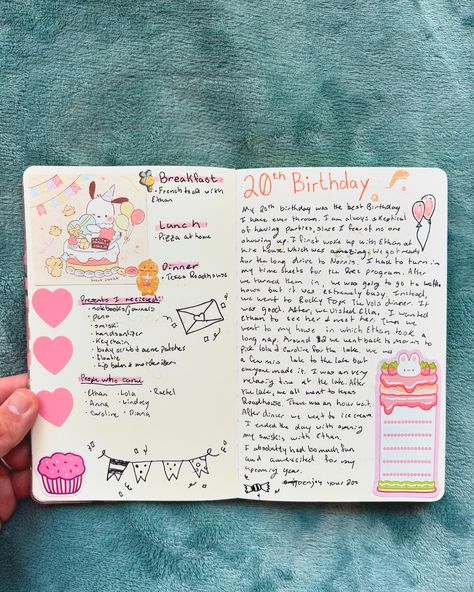 Breakfast
• French toast with
Ethan
Lunch
• Pizza at home
Dinner
• Texas Roadhouse
Presents I recieved:
• notebooks/journals
• pens
• smiski
• handsanitizer
• Keychain
• body scrub & acne patches
• lip balm & moisturizer
People who came
• Ethan • Lola • Rachel
• Anna • Lindsey
• Caroline • Diana
20th Birthday
My 20th birthday was the best Birthday
I have ever thrown. I am always skeptical
of having parties, since I fear of no one
showing up. I first woke up with Ethan at
his house which was amazing. We got ready
for the long drive to Norris. I had to turn in
my time sheets for the program. After
we turned them in, we was going to go to waffle
house but it was extremely busy. Instead,
we went to Rocky Tops the Vols dinner. It
was good. After, we visited Ella. I wanted
Ethan to see her & meet her. Then we
went to my house in which Ethan took a
long nap. Around we went back to Norris to
pick Lola & Caroline for the lake. We was
a few min late to the lake but
everyone made it. I was an very
relaxing time at the lake. After
the lake, we all went to Texas
Roadhouse. There was an hour wait.
After dinner we went to ice cream.
I ended the day with opening
my smiskis with Ethan.
I absolutely had so much fun
and am excited for my
upcoming year.
enjoy your 20s